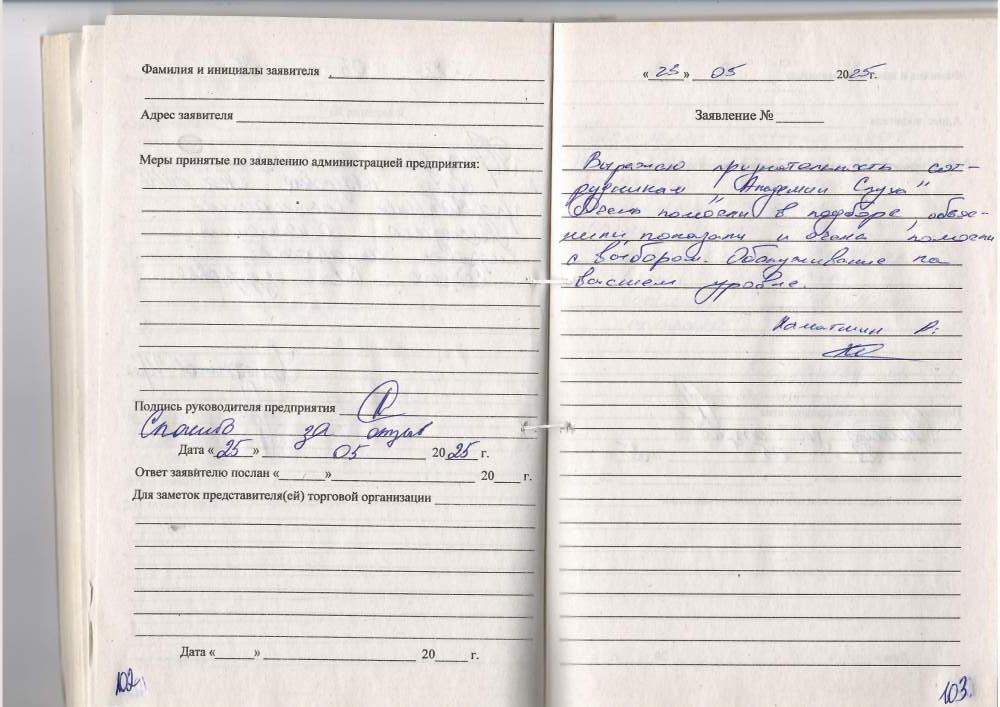 Фамилия и инициалы заявителя
Адрес заявителя
Меры принятые по заявлению администрацией предприятия:
Подпись руководителя предприятия
Спасибо за отзыв
Дата «25» 05 2025 г.
Ответ заявителю послан «____» 20___ г.
Для заметок представителя(ей) торговой организации
Дата «____» 20___ г.
102
«23» 05 2025г.
Заявление №
Выражаю признательность сот-
рудникам "Академии Слуха"
Очень помогли в подборе, объяс-
нили, показали и очень помогли
с выбором. Обслуживание на
высшем уровне.
103.